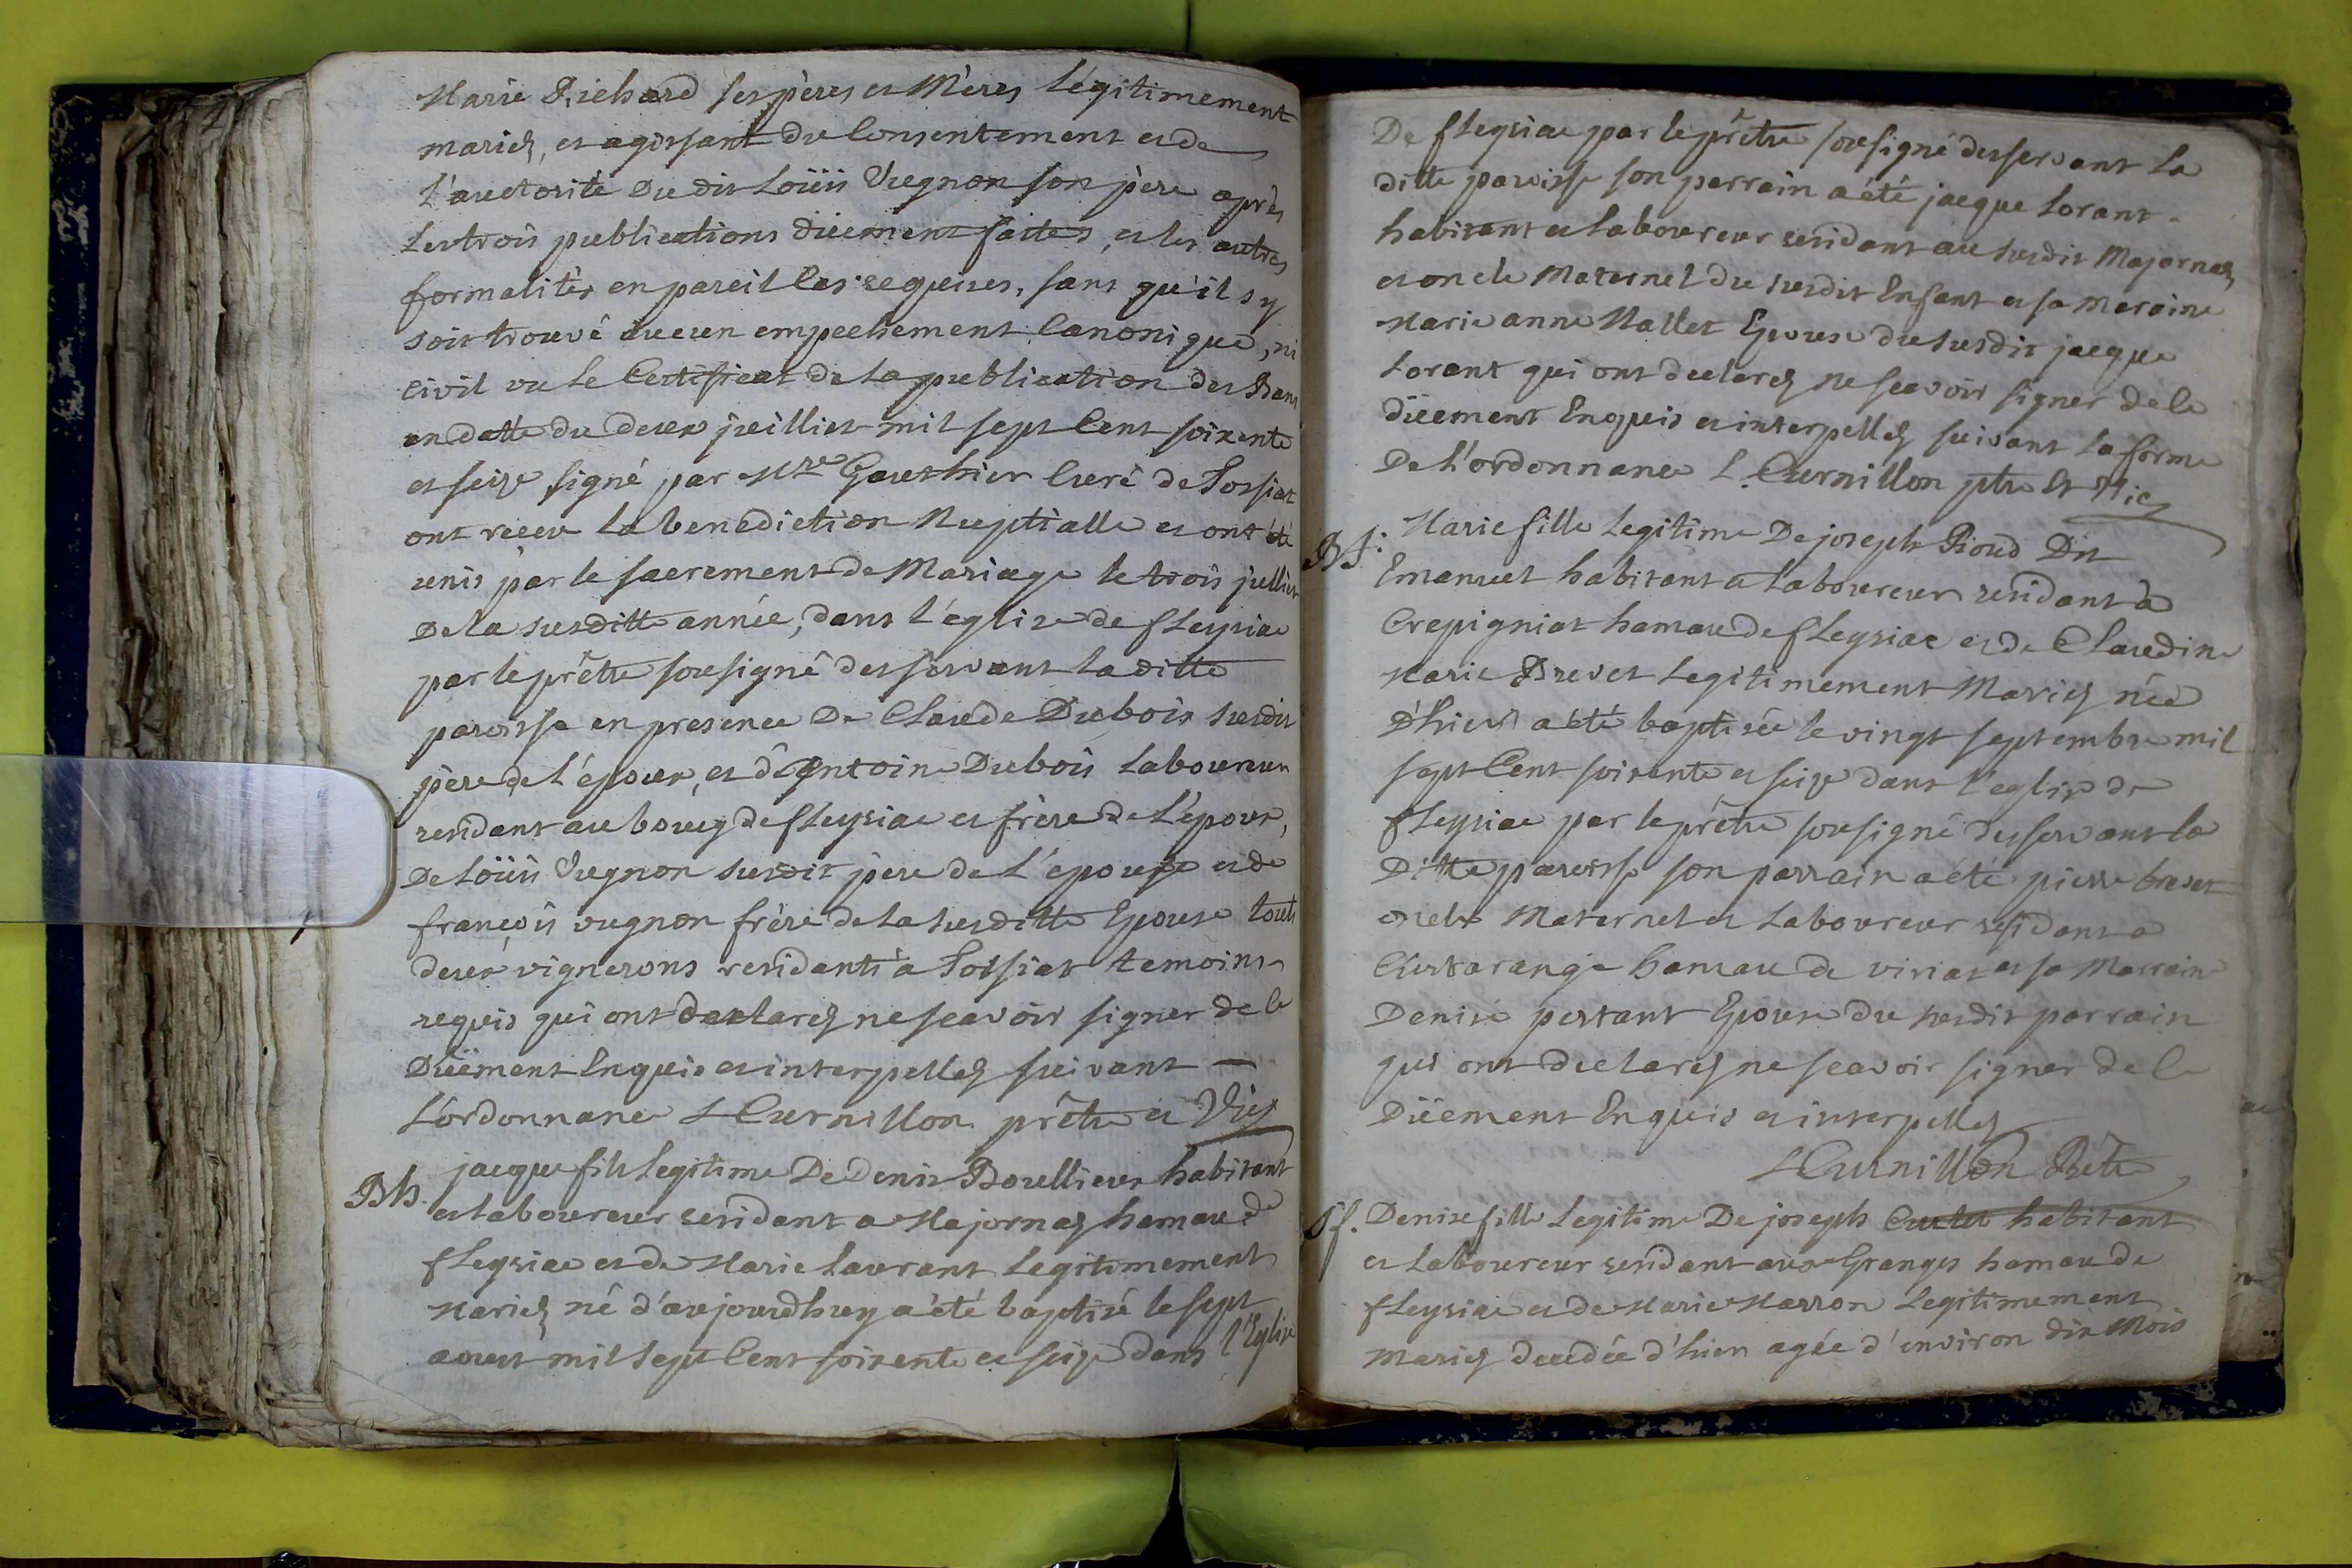 Marie Richard ses pères et Mères légitimement
mariéz, et agissant du Consentement et de
l'auctorité du dit Loüis Vugnon son père après
Les trois publications düement faites, et les autres
formalités en pareil Cas requises, sans qu'il s'y
soit trouvé aucun empechement Canonique, ni
civil vu le Certificat de la publication des Bans
en datte du deux juilliet mil sept Cent soixente
et seize signé par Mre Gauthier Curé de Tossiat
ont reçu la benediction Nuptialle et ont été
unis par le sacrement de Mariage le trois jullier
De la susditte année, dans l'église de fleysiac
par le prêtre sousigné desservant la ditte
paroisse en presence De Claude Dubois susdit
père de l'époux, et d'Antoine Dubois laboureur
residant au bourg de fleysiac et frère de l'époux,
De Loüis Vugnon susdit père de l'épouse et de
françois vugnon frère de la susditte Epouse touts
deux vignerons residants à Tossiat temoins
requis qui ont declaréz ne sçavoir signer de Ce
Düëment Enquis et interpelléz suivant —
L'ordonnance L Curnillon prêtre et Vic
Bb. jacque fils legitime De denis Boullieux habitant
et laboureur residant a Majornaz hamau de
fleysiac et de Marie laurant Legitimement
Mariéz né d'aujourdhuy a été baptisé le sept
aoust mil sept Cent soixente et seize dans l'Eglise
De fleysiac par le prêtre sousigné desservant la
ditte paroisse son parrain a été jacque Lorant
habitant et laboureur residant au susdit Majornaz
et oncle Maternel du susdit Enfant et sa Maraine
Marie anne Mallet Epouse du susdit jacque
Lorant qui ont declaréz ne sçavoir signer de Ce
düement Enquis et interpelléz suivant la forme
De L'ordonnance L. Curnillon ptre Et Vic
Bf: Marie fille Legitime De joseph Pioud Dit
Emanuel habitant et laboureur residant à
Crepigniat hamau de fleysiac et de Claudine
Marie Brevet Legitimement Mariéz née
D'hier a été baptisée le vingt septembre mil
sept Cent soixente et seize dans l'eglise de
fleysiac par le prêtre sousigné desservant la
Ditte paroisse son parrain a été pierre brevet
oncle Maternel et Laboureur residant a
Curtarange hamau de viriat et sa Marraine
Denise pertant Epouse du susdit parrain
qui ont declaréz ne sçavoir signer de Ce
Düement Enquis et interpelléz
L Curnillon Prêtre
Sf. Denise fille Legitime De joseph Curtet habitant
et laboureur residant aux Granges hamau de
fleysiac et de Marie Marron Legitimement
Mariéz decedée d'hier agée d'environ dix Mois